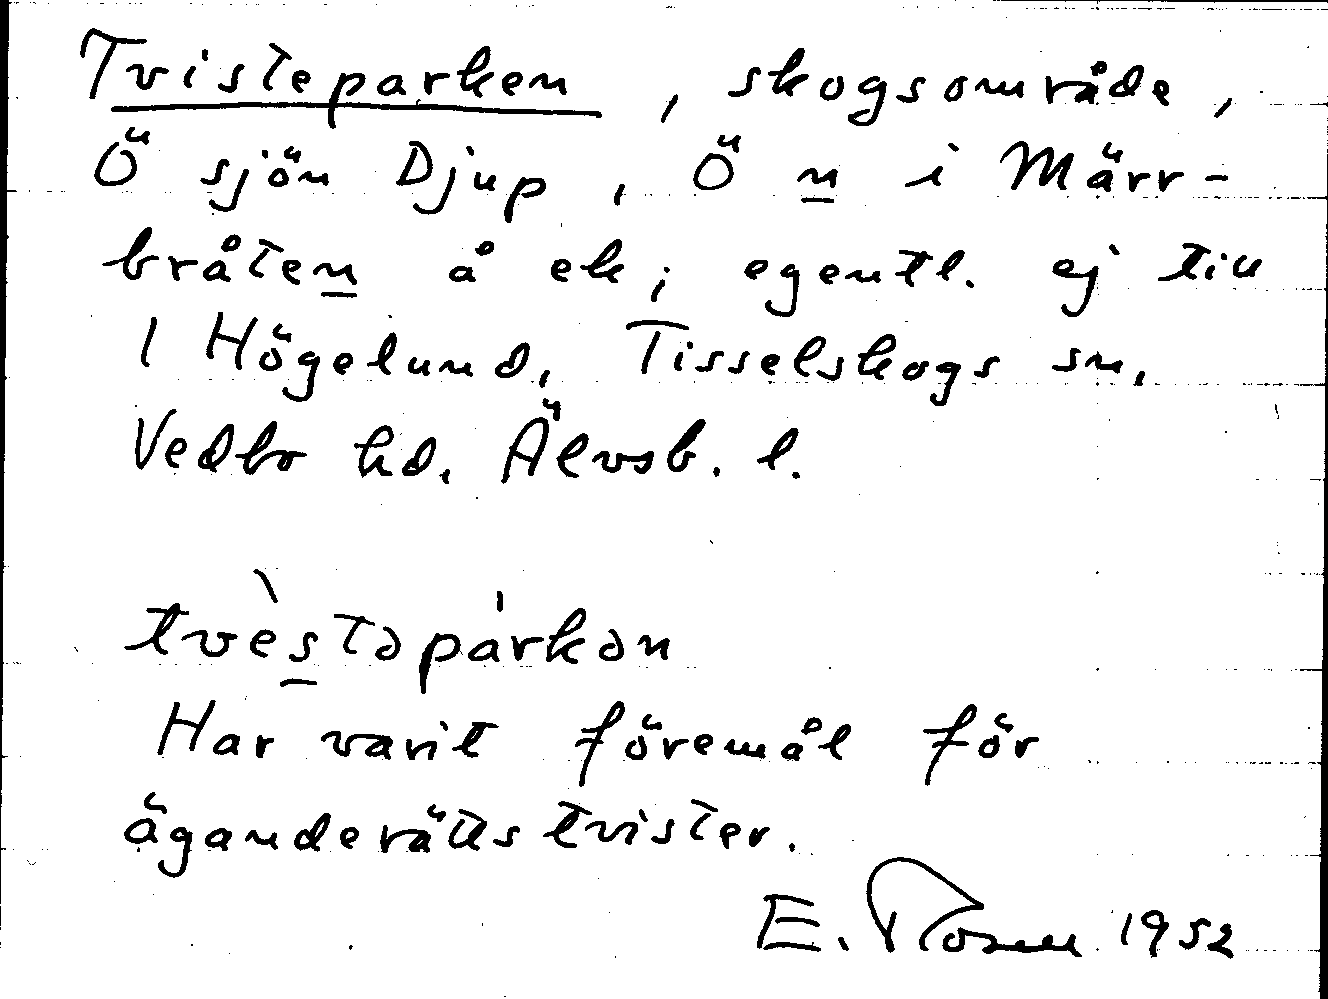 Tvisteparken, skogsområde,
Ö sjön Djup, Ö n i Märr-
bråten å ek; egentl. ej till
1 Högelund, Tisselskogs sn,
Vedbo hd. Älvsb. l.
tvèstəpárkən
Har varit föremål för
äganderättstvister.
E. Rosell 1952